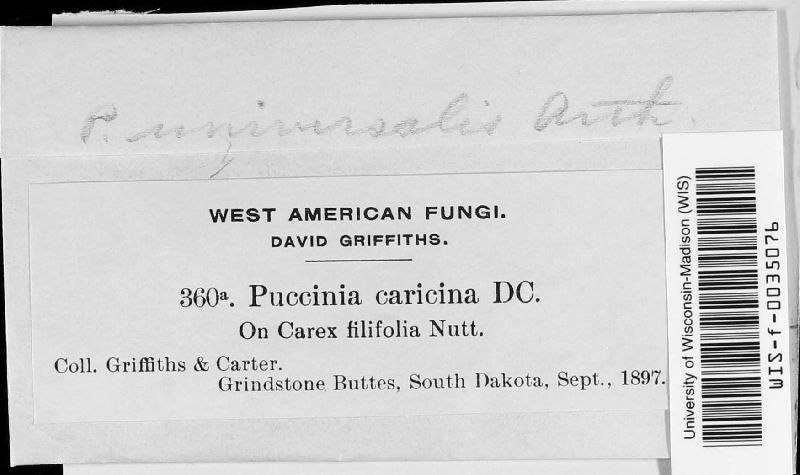 P. universalis Arth.
WEST AMERICAN FUNGI.
DAVID GRIFFITHS.
360a. Puccinia caricina DC.
On Carex filifolia Nutt.
Coll. Griffiths & Carter.
Grindstone Buttes, South Dakota, Sept., 1897.
University of Wisconsin-Madison (WIS)
WIS-f-0035076